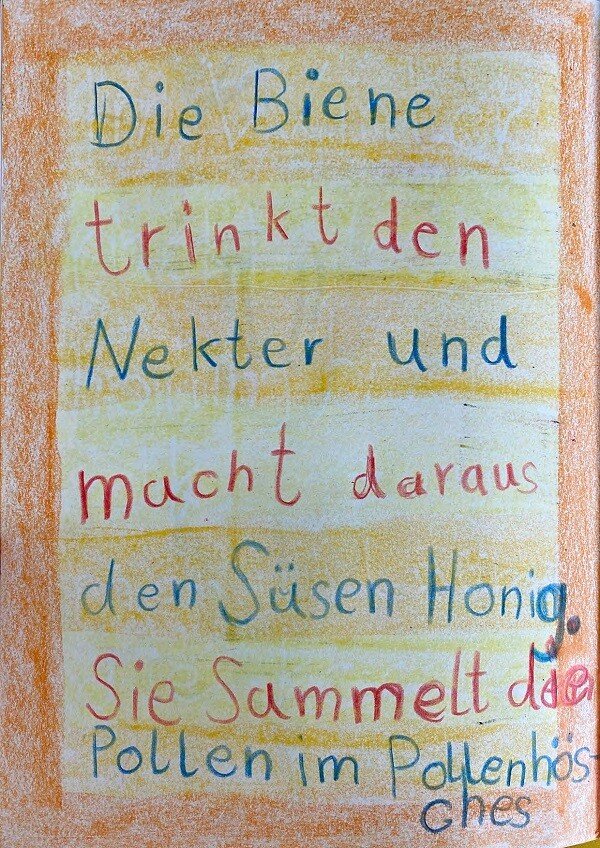 Die Biene
trinkt den
Nekter und
macht daraus
den Süsen Honig.
Sie Sammelt den
Pollen im Pollenhös-
ches